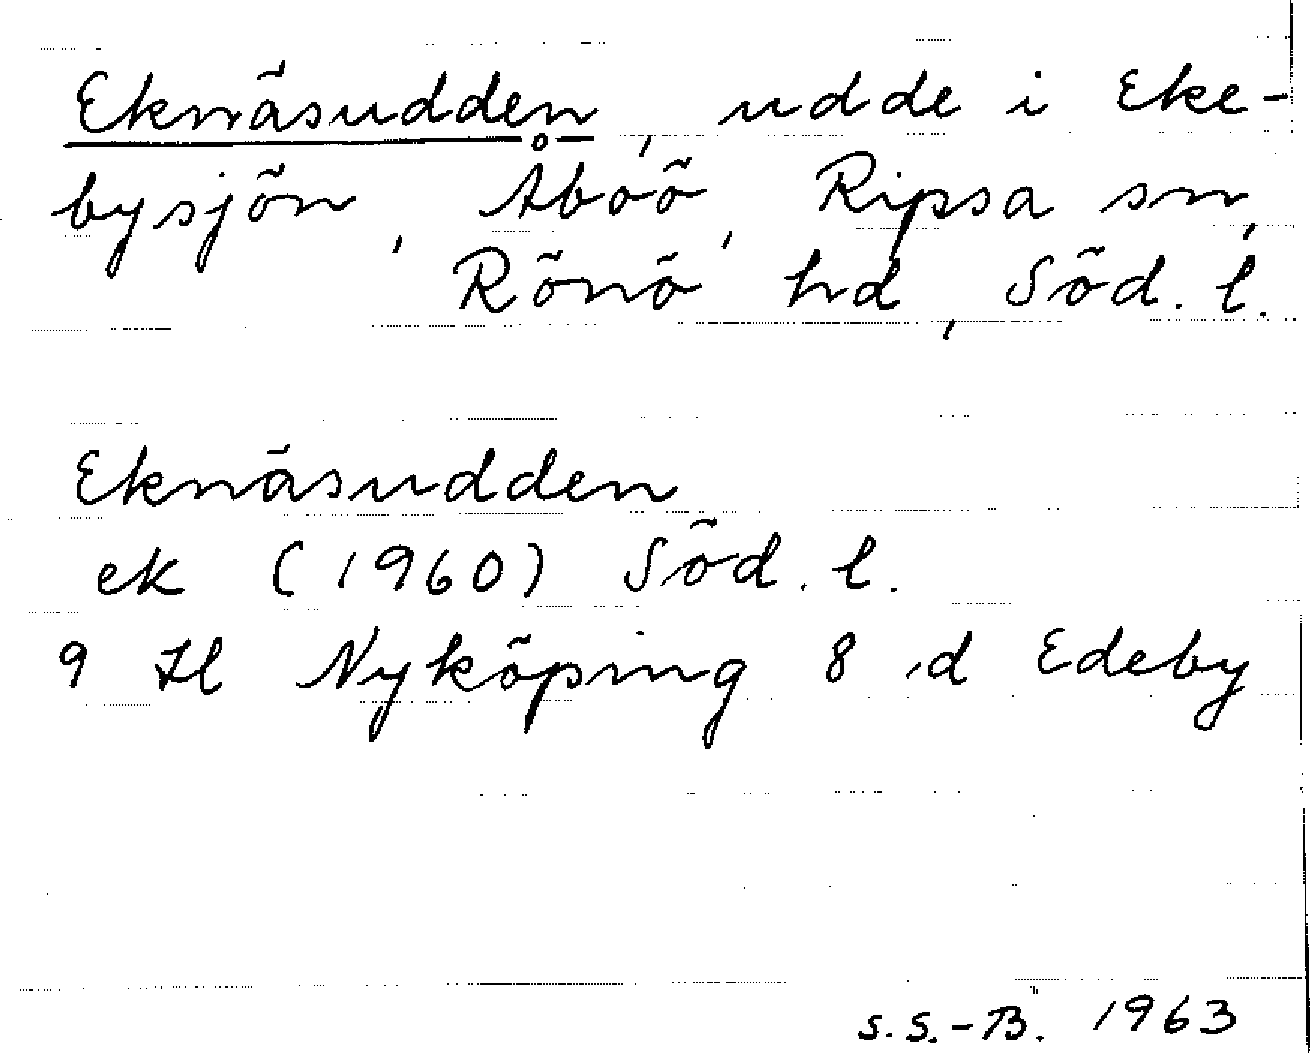 Eknäsudden, udde i Eke-
bysjön, Åboö, Ripsa sn,
Rönö hd, Söd. l.
Eknäsudden
ek (1960) Söd. l.
9 H Nyköping 8 d Edeby
S.S.-B. 1963